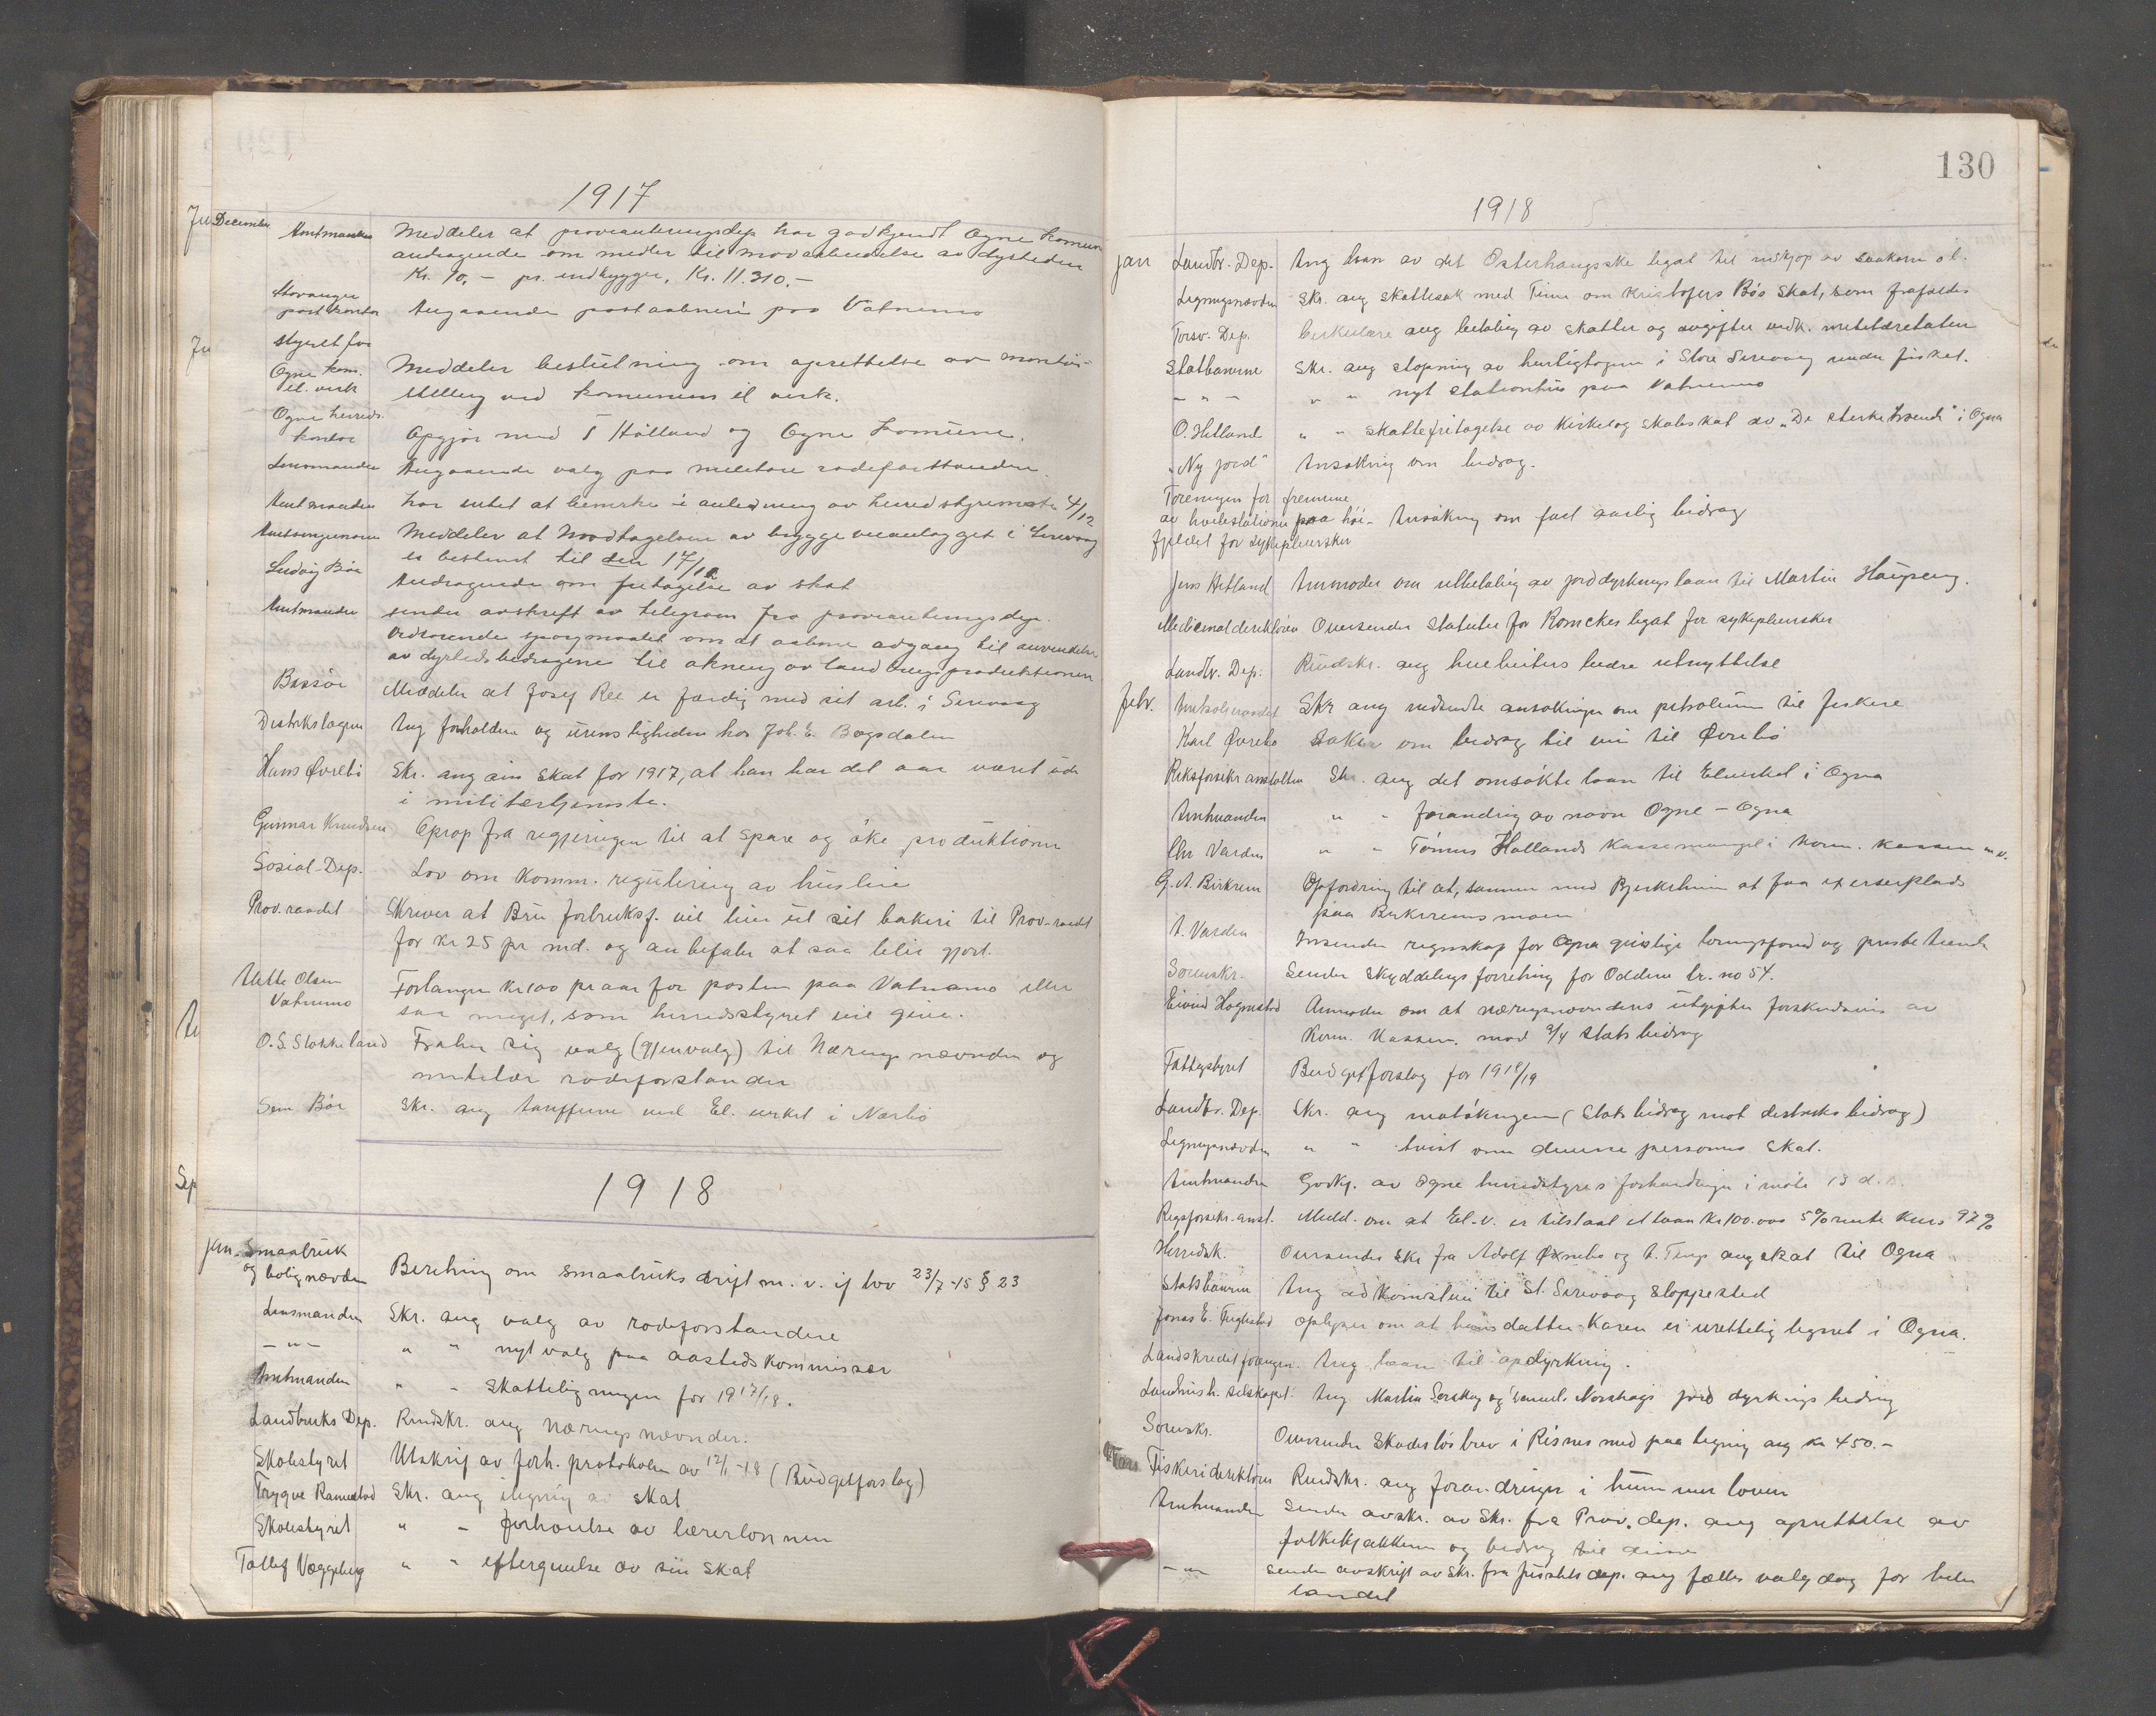 1917
December Amtmanden Meddeler at provianteringsdep. har godkjendt Ogne komun
andragende om midler til motarbeidelse av dyrtiden
Kr. 10,- pr. indbygger, Kr. 11.310.-
Stavanger
postkontor Angaaende postaabneri paa Vatnemo
Styret for
Ogne kom.
el. verk Meddeler beslutning om oprettelse av montør-
stilling ved komunens el verk.
Ogne herreds-
kontor Opgjør med T Hålland og Ogne komune.
Lensmanden Angaaende valg paa militære rodeforstander
Amtmanden har intet at bemerke i anledning av herredstyremøte 4/12
Amtsingeniøren Meddeler at Mottagelsen av brygge anlegget i Sirevaag
er bestemt til den 17/12
Ludvig Bøe Andragende om fritagelse av skat
Amtmanden sender avskrift av telegram fra provianteringsdep.
vedrørende spørgsmaalet om at aabne adgang til anvendelse
av dyrtidsbidragene til økning av landbrugsproduktionen
Meddeler at Josef Ree er færdig med sit arb. i Sirevaag
Distrikslægen Ang forholdene og urensligheden hos Joh. E. Bøgsdalen
Hans Øvrebö Skr. ang sin skat for 1917, at han har det aar været ude
i militærtjeneste.
Gunnar Knudsen Oprop fra regjeringen til at spare og öke produktionen
Sosial-Dep. Lov om komm. regulering av husleie
Prov. raadet Skriver at Bru forbruksf. vil leie ut sit bakeri til Prov-raadet
for kr 25 pr md. og anbefaler at saa blir gjort.
Olsen
Vatnemo Forlanger kr 100 pr aar for posten paa Vatnamo eller
saa meget, som herredsstyret vil give.
O. S. Stokkeland Fraber sig valg (gjenvalg) til Næringsnævnden og
militær rodeforstander
Sem Bøe Skr. ang tariffene ved El. verket i Nærbö
1918
Jan. Smaabruk
og bolignevnden Beretning om smaabruks drift m. v. if lov 23/7-15 § 23
Lensmanden Skr. ang valg av rodeforstandere
-"- " " nyt valg paa aasteds kommissær
Amtmanden " - Skattelig ningen for 1917/18.
Landbruks Dep. Rundskr. ang Nærings nævnder.
Skolestyret Utskrift av forh. protokolen av 12/1-18 (Budgetforslag)
Trygve Rameslad Skr. ang skat
Skolestyret " - forhøielse av lærerlønnen
Tollef Væggeberg " " eftergivelse av sin skat
130
1918
jan Landbr. Dep. Ang laan av det Osterhaugske legat til indkjøp av saakorn ol.
Ligningsnævnden Skr. ang skattesak med Time om Kristofers Bøs skat, som frafaldes
Forsv. Dep. Cirkulære ang betaling av skatter og avgifter vedk. militæretaten
Statbanerne Skr. ang stopning av hurtigtogene i Store Sirevaag under fisket.
- " - " " nyt stationshus paa Vatnemo
O. Hetland " " skattefritagelse av Kirke og skoleskat av „De sterke troende" i Ogna
„Ny jord" Ansøkning om bidrag.
Foreningen for fremme
av hvilestationer paa høi- Ansøkning om fast aarlig bidrag
fjeldet for sykepleiersker
Jens Hetland Anmoder om utbetaling av jorddyrkningslaan til Martin Haugseng.
Medicinaldirektören Oversender Statuter for Romckes legat for sykepleiersker
Landbr. Dep. Rundskr. ang bedre utnyttelse
febr. Skr ang indsendte ansøkninger om petroleum til fiskere
Karl Øvrebö Søker om bidrag til vei til Øvrebö
Riksforsikr anstalten Skr. ang det omsøkte laan til Elverket i Ogna
Amtmanden " " forandring av navn Ogne – Ogna
Chr Varden " " Tönnes Hallands Kassemangel i kom. kassen m.v.
G. A. Birkrem Opfordring til at, sammen med Bjerkreim at faa exerserplads
paa Birkremsmoen
A. Varden Insender regnskap for Ogna geistlige lønningsfond og preste tiende
Sorenskr. Sender Skyddelings forretning for Oddene br. no 54.
Eivind Hognestad Anmoder om at næringsnevndens utgifter forskuderes av
kom. kassen, mod 3/4 statsbidrag
Fattigstyret Budgetforslag for 1918/19
Landbr. Dep. Skr. ang matökningen (Stats bidrag mot distrikts bidrag)
Ligningsnævnden " " tvist om diverse personers skat.
Amtmanden Godkj. av Ogne herredstyres forhandlinger i möte 13 d.
Rigsforsikr. anst. Medd. om at El.-v. er tilstaat et laan Kr 100.000 5% rente kurs 97%
Herredsk. Oversender Skr fra Adolf Øxnebo og ang skat til Ogna
Statsbanen Ang adkomstvei til St. Sirevaag stoppested
Jonas E. Fuglestad oplyser om at hans datter Karen er urettelig lignet i Ogna.
Landskreditforeningen. Ang laan til opdyrkning.
Landhush. selskapet. Ang Martin og jord dyrknings bidrag
Sorenskr. Oversender Skadesløsbrev i Risnes med paategning ang kr 450.-
Mars Fiskeridirektören Rundskr. ang forandringer i hummer loven
Amtmanden Sender avskr. av Skr. fra Prov. dep. ang oprettelse av
folkekjøkken og bidrag til disse
-"- sender avskrift av skr. fra justits dep. ang fælles valgdag for hele
landet